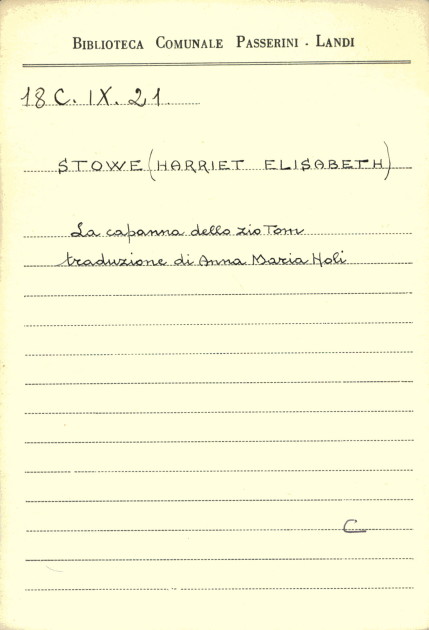 BIBLIOTECA COMUNALE PASSERINI - LANDI
18 C. IX. 21.
STOWE (HARRIET ELISABETH)
La capanna dello zio Tom
traduzione di Anna Maria Holi
C